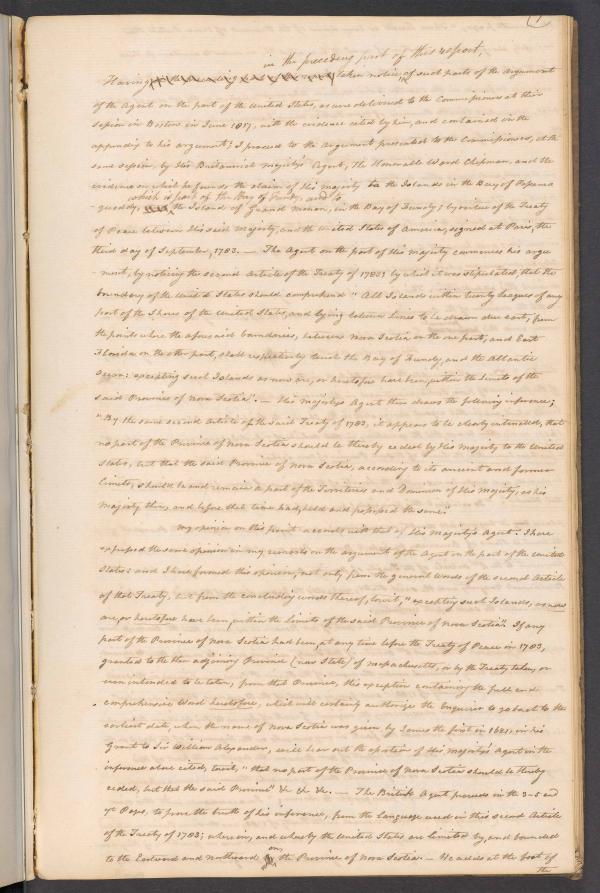 1
in the preceding part of this report,
Having taken notice of such parts of the argument
of the Agent on the part of the United States, as were delivered to the Commissioners at their
session in Boston in June 1817, with the evidence cited by him, and contained in the
appendix to his argument; I proceed to the argument presented to the Commissioners, at the
same session, by His Britannick Majesty's Agent, The Honorable Ward Chipman, and the
evidence on which he founds the claim of His Majesty to the Islands in the Bay of Passama
which is part of the Bay of Fundy, and to
-quoddy, the Island of Grand Menan, in the Bay of Fundy; by virtue of the Treaty
of Peace between His said Majesty, and the United States of America, signed at Paris, the
third day of September, 1783. — The Agent on the part of His Majesty commences his argu
-ment, by noticing the second Article of the Treaty of 1783; by which it was stipulated that the
boundary of the United States should comprehend "All Islands within twenty leagues of any
part of the Shores of the United States, and lying between lines to be drawn due east, from
the points where the aforesaid boundaries, between Nova Scotia, on the one part, and East
Florida on the other part, shall respectively touch the Bay of Fundy, and the Atlantic
Ocean: excepting such Islands as now are, or heretofore have been, within the limits of the
said Province of Nova Scotia". — His Majesty's Agent then draws the following inference;
"By the same second Article of the said Treaty of 1783, it appears to be clearly intended, that
no part of the Province of Nova Scotia should be thereby ceded by His Majesty to the United
States, but that the said Province of Nova Scotia, according to its ancient and former
limits, should be and remain a part of the Territories and Dominion of His Majesty, as his
Majesty then, and before that time had, held and possessed the same."
My opinion on this point accords with that of His Majesty's Agent. I have
expressed the same opinion in my remarks on the argument of the Agent on the part of the United
States: and I have formed this opinion, not only from the general words of the second Article
of that Treaty, but from the concluding words thereof, towit, "excepting such Islands, as now
are, or heretofore have been, within the limits of the said Province of Nova Scotia". If any
part of the Province of Nova Scotia had been, at any time before the Treaty of Peace in 1783,
granted to the then adjoining Province (now State) of Massachusetts, or by the Treaty taken, or
even intended to be taken, from that Province, this exception containing the full and
comprehensive Word heretofore, which will certainly authorize the Enquirer to go back to the
earliest date, when the name of Nova Scotia was given by James the first in 1621, in his
Grant to Sir William Alexander, will bear out the assertion of His Majesty's Agent in the
inference above cited, towit, "that no part of the Province of Nova Scotia should be thereby
ceded, but that the said Province" &c &c &c. — The British Agent proceeds in the 3-5 and
7th Pages, to prove the truth of his inference, from the Language used in this second Article
of the Treaty of 1783; wherein, and whereby the United States are limited by, and bounded
on
to the Eastward and Northward the Province of Nova Scotia. — He adds at the foot of
the